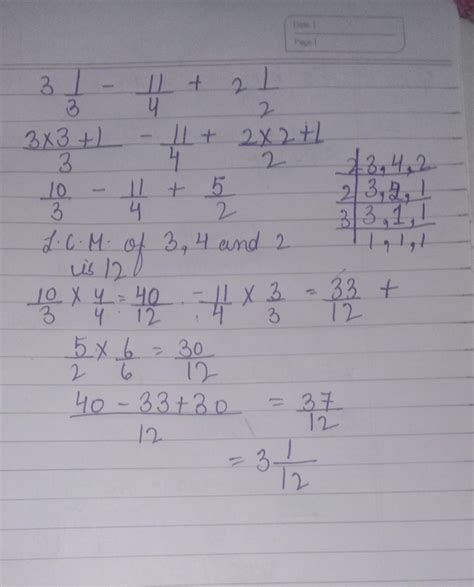 Date
Page
3 1/3 - 11/4 + 2 1/2
3×3+1/3 - 11/4 + 2×2+1/2
10/3 - 11/4 + 5/2
2 | 3, 4, 2
2 | 3, 2, 1
3 | 3, 1, 1
1, 1, 1
L.C.M. of 3, 4 and 2
is 12
10/3 × 4/4 = 40/12 - 11/4 × 3/3 = 33/12 +
5/2 × 6/6 = 30/12
40 - 33 + 30/12 = 37/12
= 3 1/12